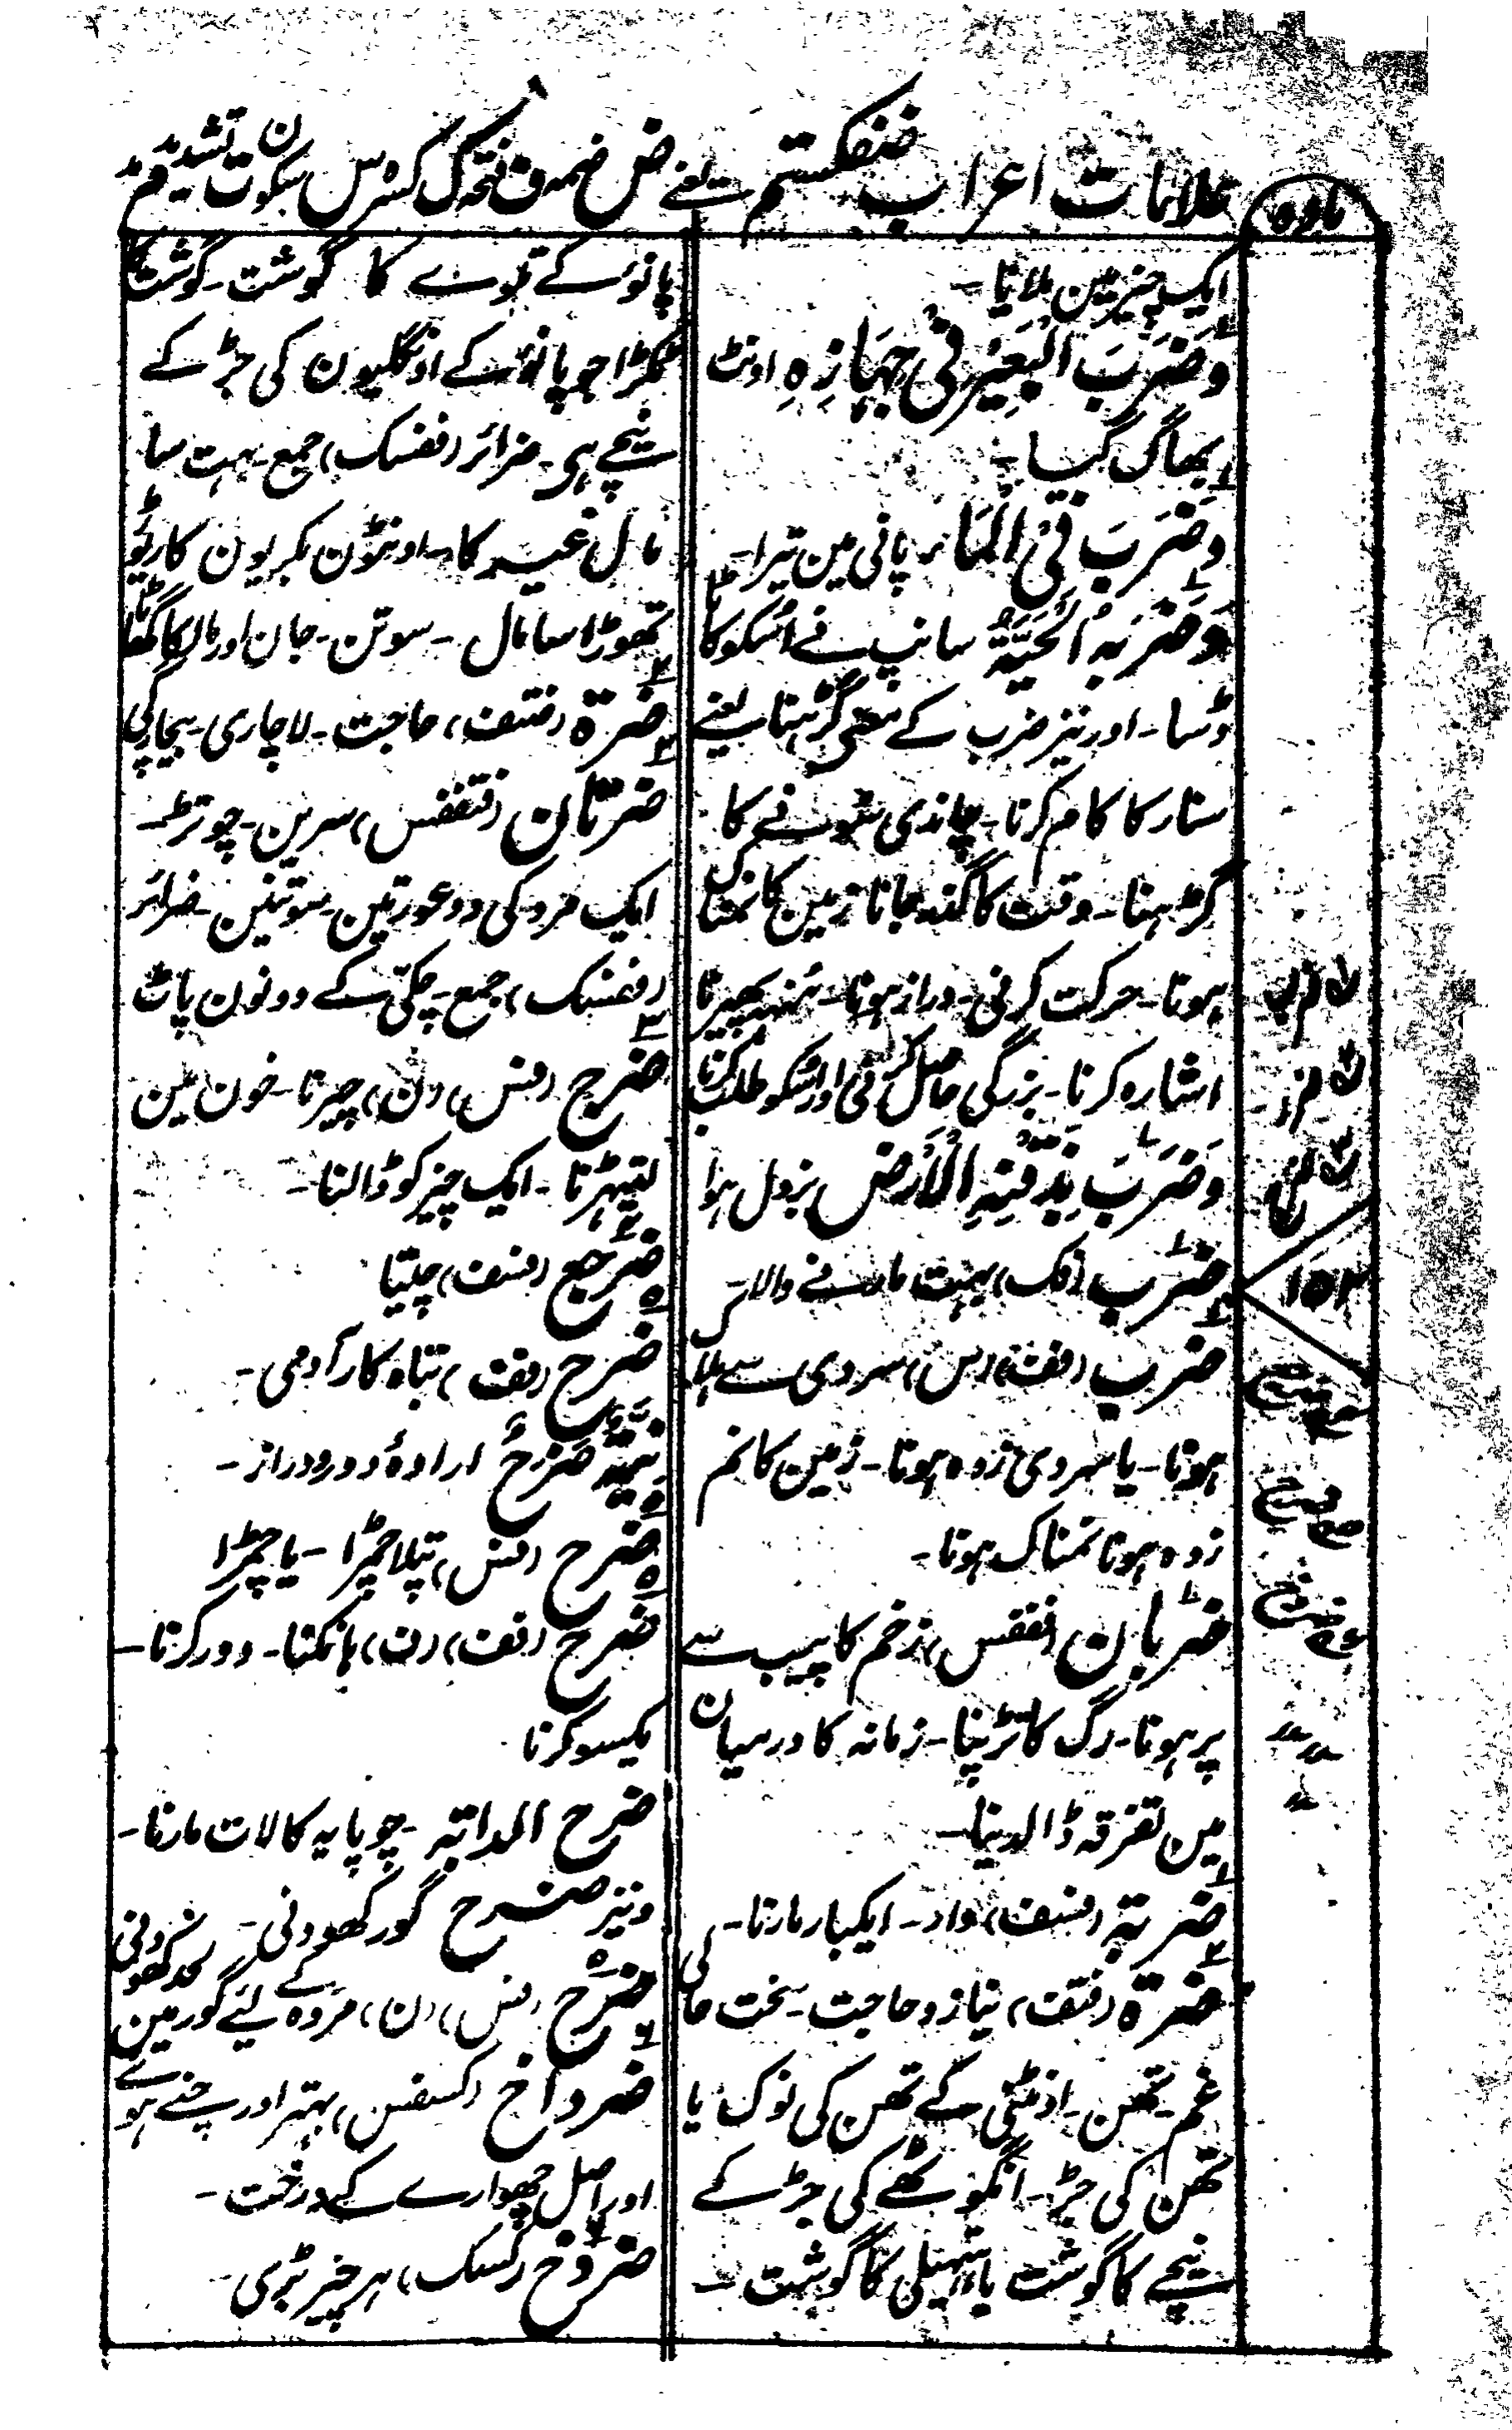 مادہ
علامات اعراب ضفکستم یعنے ض ضمہ ف فتحہ ک کسرہ س سکون ت تشدید م مد
ایک چیز مین ملانا۔
وَضَرَبَ الْبَعِیْرُ فِیْ جِهَازِہِ اونٹ
بھاگ گیا۔
وَضَرَبَ فِی الْمَاءِ پانی مین تیرا۔
وَضَرَبَہُ الْحَیَّةُ سانپ نے اُسکو کاٹا
ڈسا۔ اور نیز ضرب کے معنی گڑہنا یعنے
سنار کا کام کرنا۔ چاندی سونے کا
گڑہنا۔ وقت کا گذر جانا زمین کا نمناک
ہونا۔ حرکت کرنی۔ دراز ہونا۔ مُنہہ پھیرنا
اشارہ کرنا۔ بزرگی حاصل کرنی اور اُسکو طلب کرنا
وَضَرَبَ بِذَقَنِہِ الْاَرْضَ بزدل ہوا
ضرب (فک) بہت مارنے والا۔
ضرب (فف) (س) سردی سے ہلاک
ہونا۔ یا سردی زدہ ہونا۔ زمین کا نم
زدہ ہونا نمناک ہونا۔
ضربان (فففس) زخم کا پیپ سے
پر ہونا۔ رگ کا تڑپنا۔ زمانہ کا درمیان
مین تفرقہ ڈالدینا۔
ضربة (فسف) واد۔ ایکبار مارنا۔
ضرة (فتف) نیاز و حاجت۔ سخت حالی
غم۔ تھن۔ اونٹنی کے تھن کی نوک یا
تھن کی جڑ۔ انگوٹھے کی جڑ کے
نیچے کا گوشت یا ہتہیلی کا گوشت۔
پانوٴ کے تلوے کا گوشت۔ گوشت کا
ٹکڑا جو پانوٴ کے اونگلیون کی جڑ کے
نیچے ہی۔ ضرائر (ففسک) جمع۔ بہت سا
مال غیر کا۔ اونٹون بکریون کا ریوڑ
تھوڑا سا مال۔ سوتن۔ جان اور مال کا گھاٹا
ضرة (فتف) حاجت۔ لاچاری۔ بیچارگی
ضرتان (فتففس) سرین۔ چوتڑ۔
ایک مرد کی دو عورتین۔ سوتنین۔ ضرائر
(ففسک) جمع۔ چکّی کے دونون پاٹ
ضرج (فس) (ن) چیرنا۔ خون مین
لتیہڑنا۔ ایک چیز کو ڈالنا۔
ضرجع (فسف) چیتا
ضرح (فف) تباہ کار آدمی۔
نِیَّةٌ ضَرَحٌ ارادۂ دور و دراز۔
ضرح (فس) پتلا چمڑا۔ یا چمڑا
ضرح (فف) (ف) ہانکنا۔ دور کرنا۔
یکسو کرنا
ضرح الدابة۔ چوپایہ کا لات مارنا۔
و نیز ضرح گور کھودنی۔
ضرح (فس) (ن) مردہ کے لیٔے گور مین لحد کھودنی
ضرداخ (کسفس) بہتر اور چنے ہوے
اور اصل چھوارے کے درخت۔
ضردخ (کسک) ہر چیز بڑی۔
۱۵۲